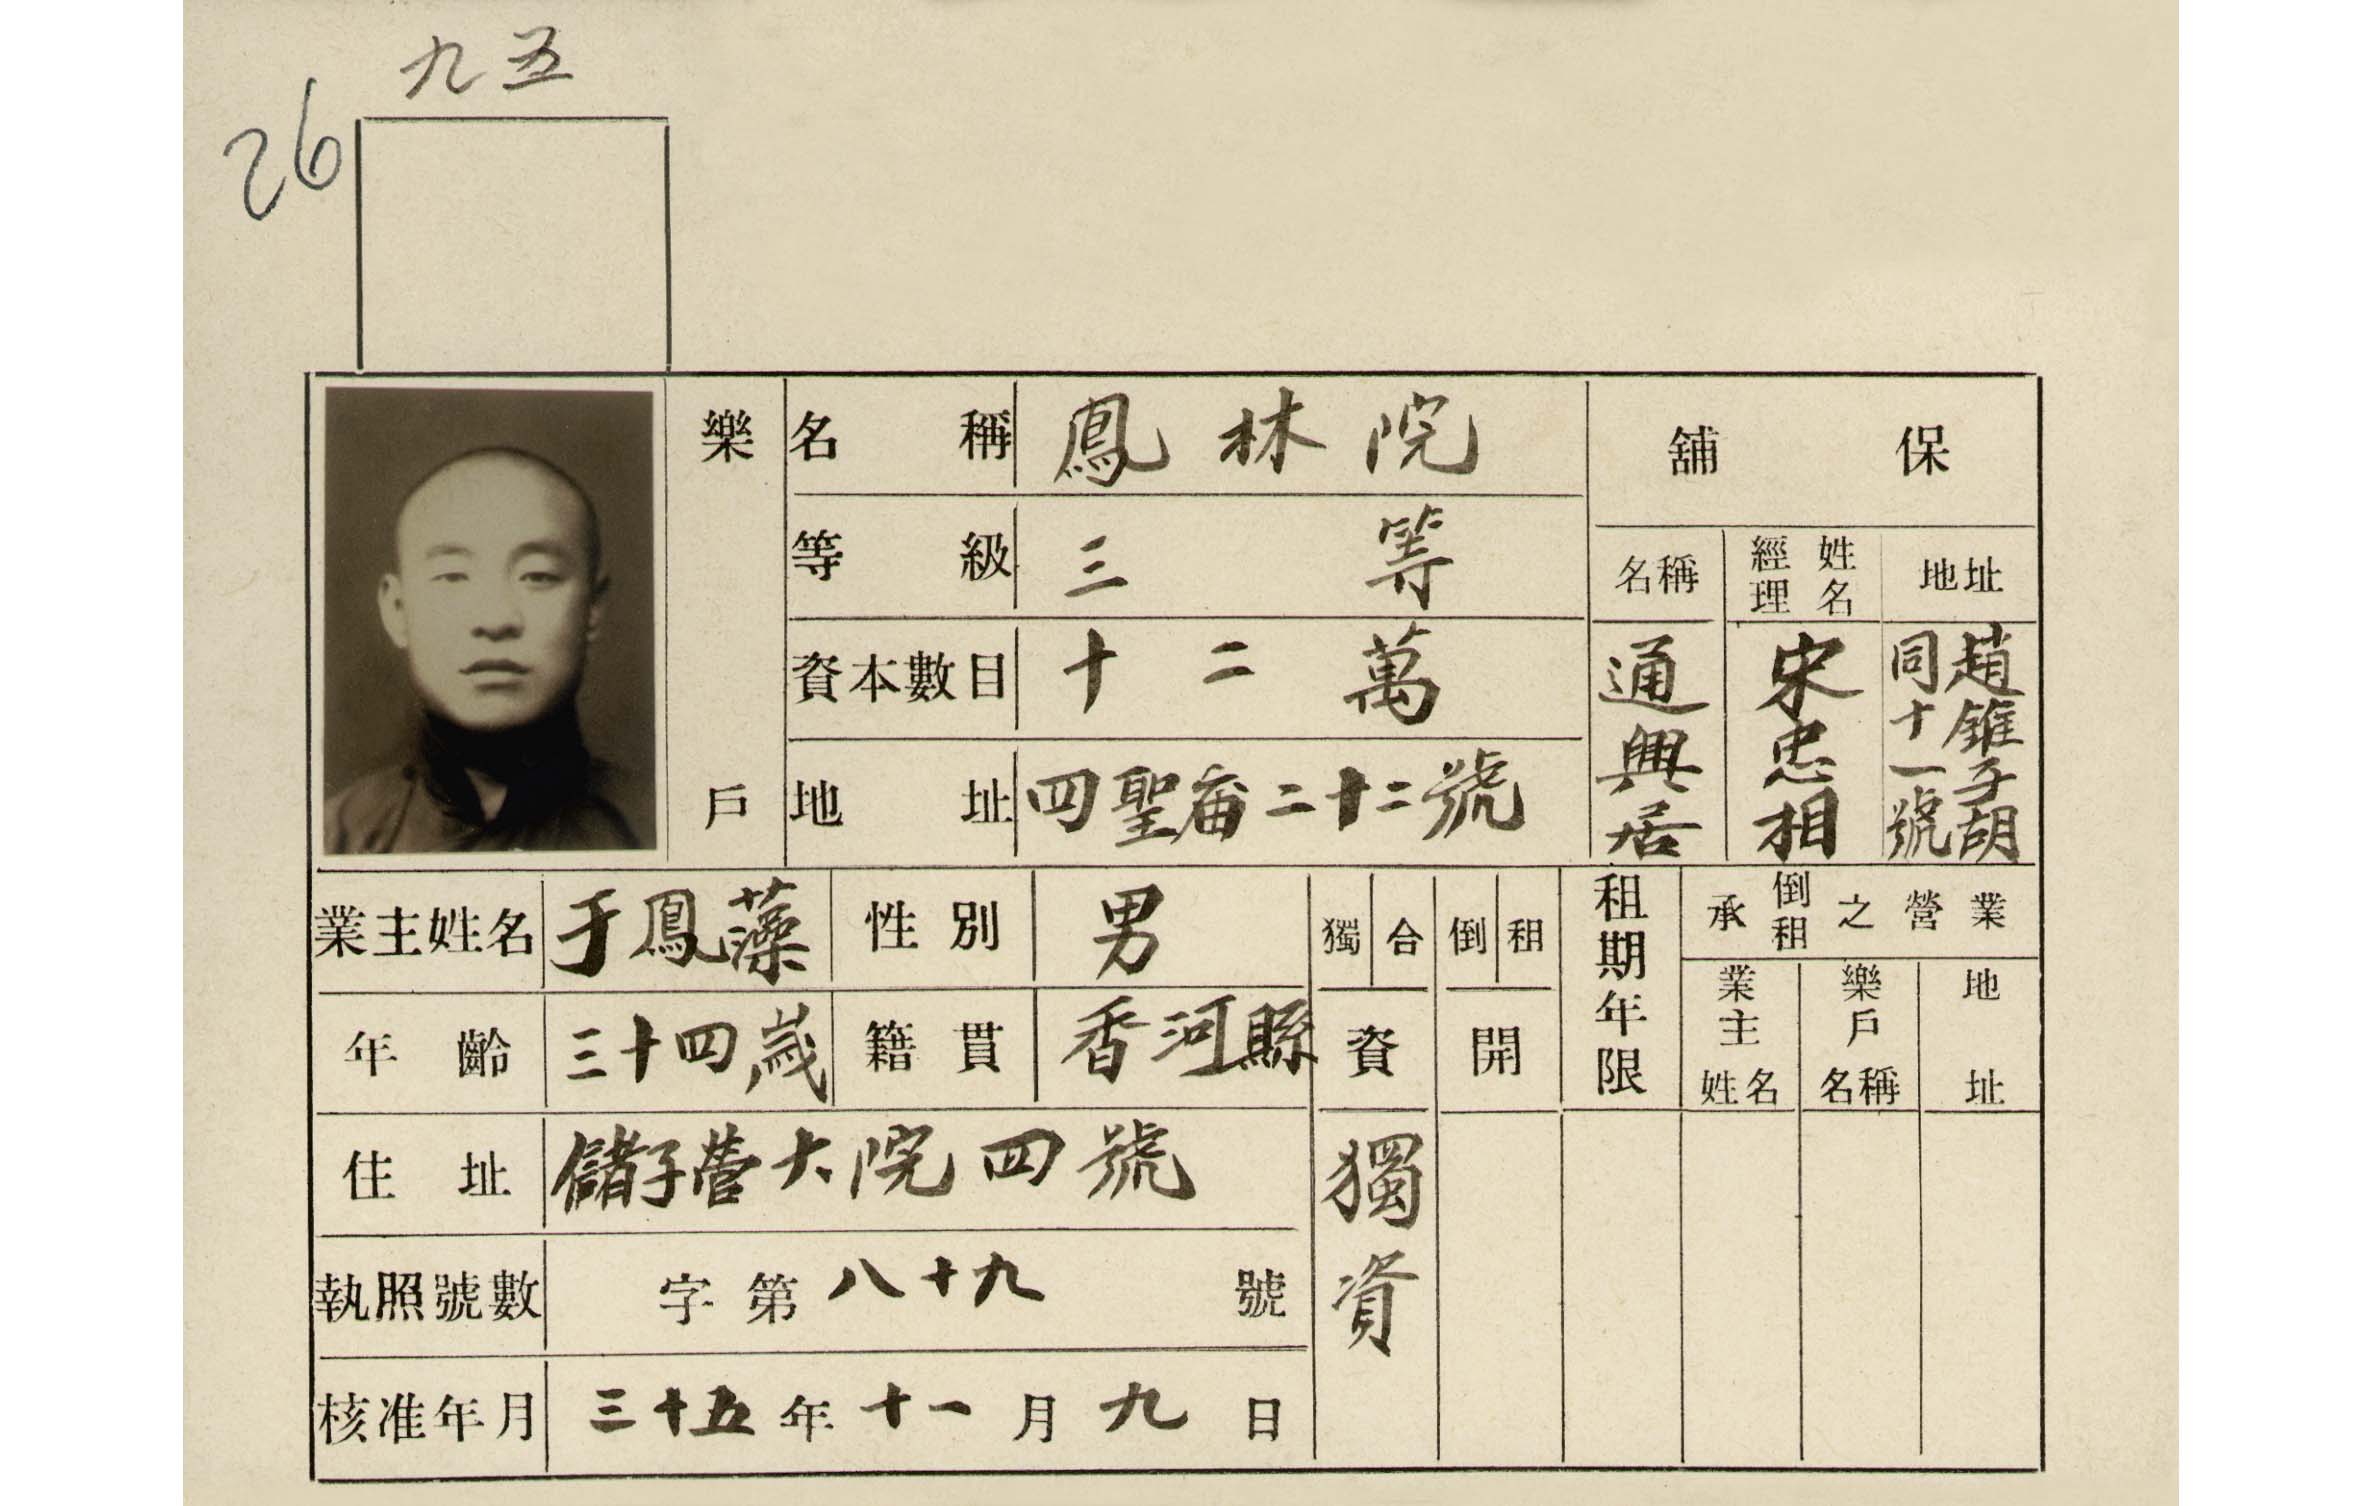 九五
26
樂戶
名稱 鳳林院
等級 三等
資本數目 十二萬
地址 四聖廟二十二號
舖保
名稱 經理姓名 地址
通興居 宋忠相 趙錐子胡同十一號
業主姓名 于鳳藻 性別 男
年齡 三十四歲 籍貫 香河縣
住址 儲子營大院四號
執照號數 字第八十九號
核准年月 三十五年十一月九日
獨合資
獨資
倒租開
租期年限
承倒租之營業
業主姓名 樂戶名稱 地址